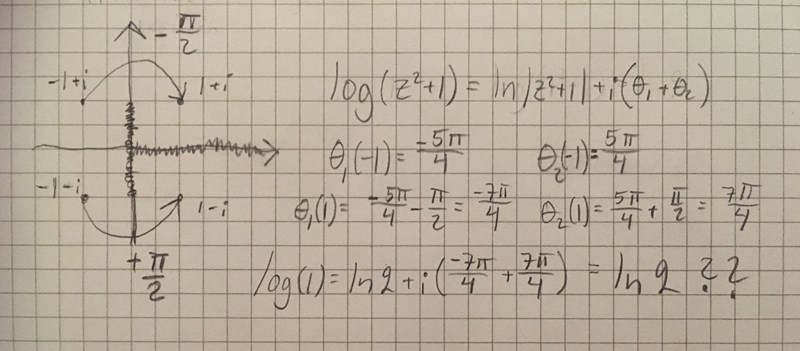 -π/2
-1+i 1+i
log(z²+1) = ln|z²+1|+i(θ₁+θ₂)
θ₁(-1)= -5π/4 θ₂(-1)= 5π/4
-1-i 1-i
θ₁(1)= -5π/4 - π/2 = -7π/4 θ₂(1)= 5π/4 + π/2 = 7π/4
+π/2
log(1)= ln2+i(-7π/4 + 7π/4) = ln 2 ??